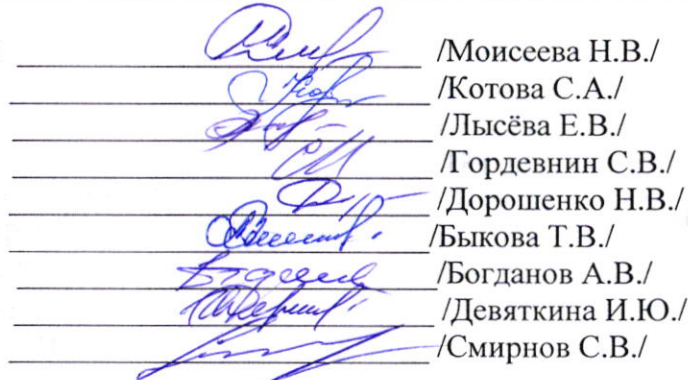 /Моисеева Н.В./
/Котова С.А./
/Лысёва Е.В./
/Гордевнин С.В./
/Дорошенко Н.В./
/Быкова Т.В./
/Богданов А.В./
/Девяткина И.Ю./
/Смирнов С.В./